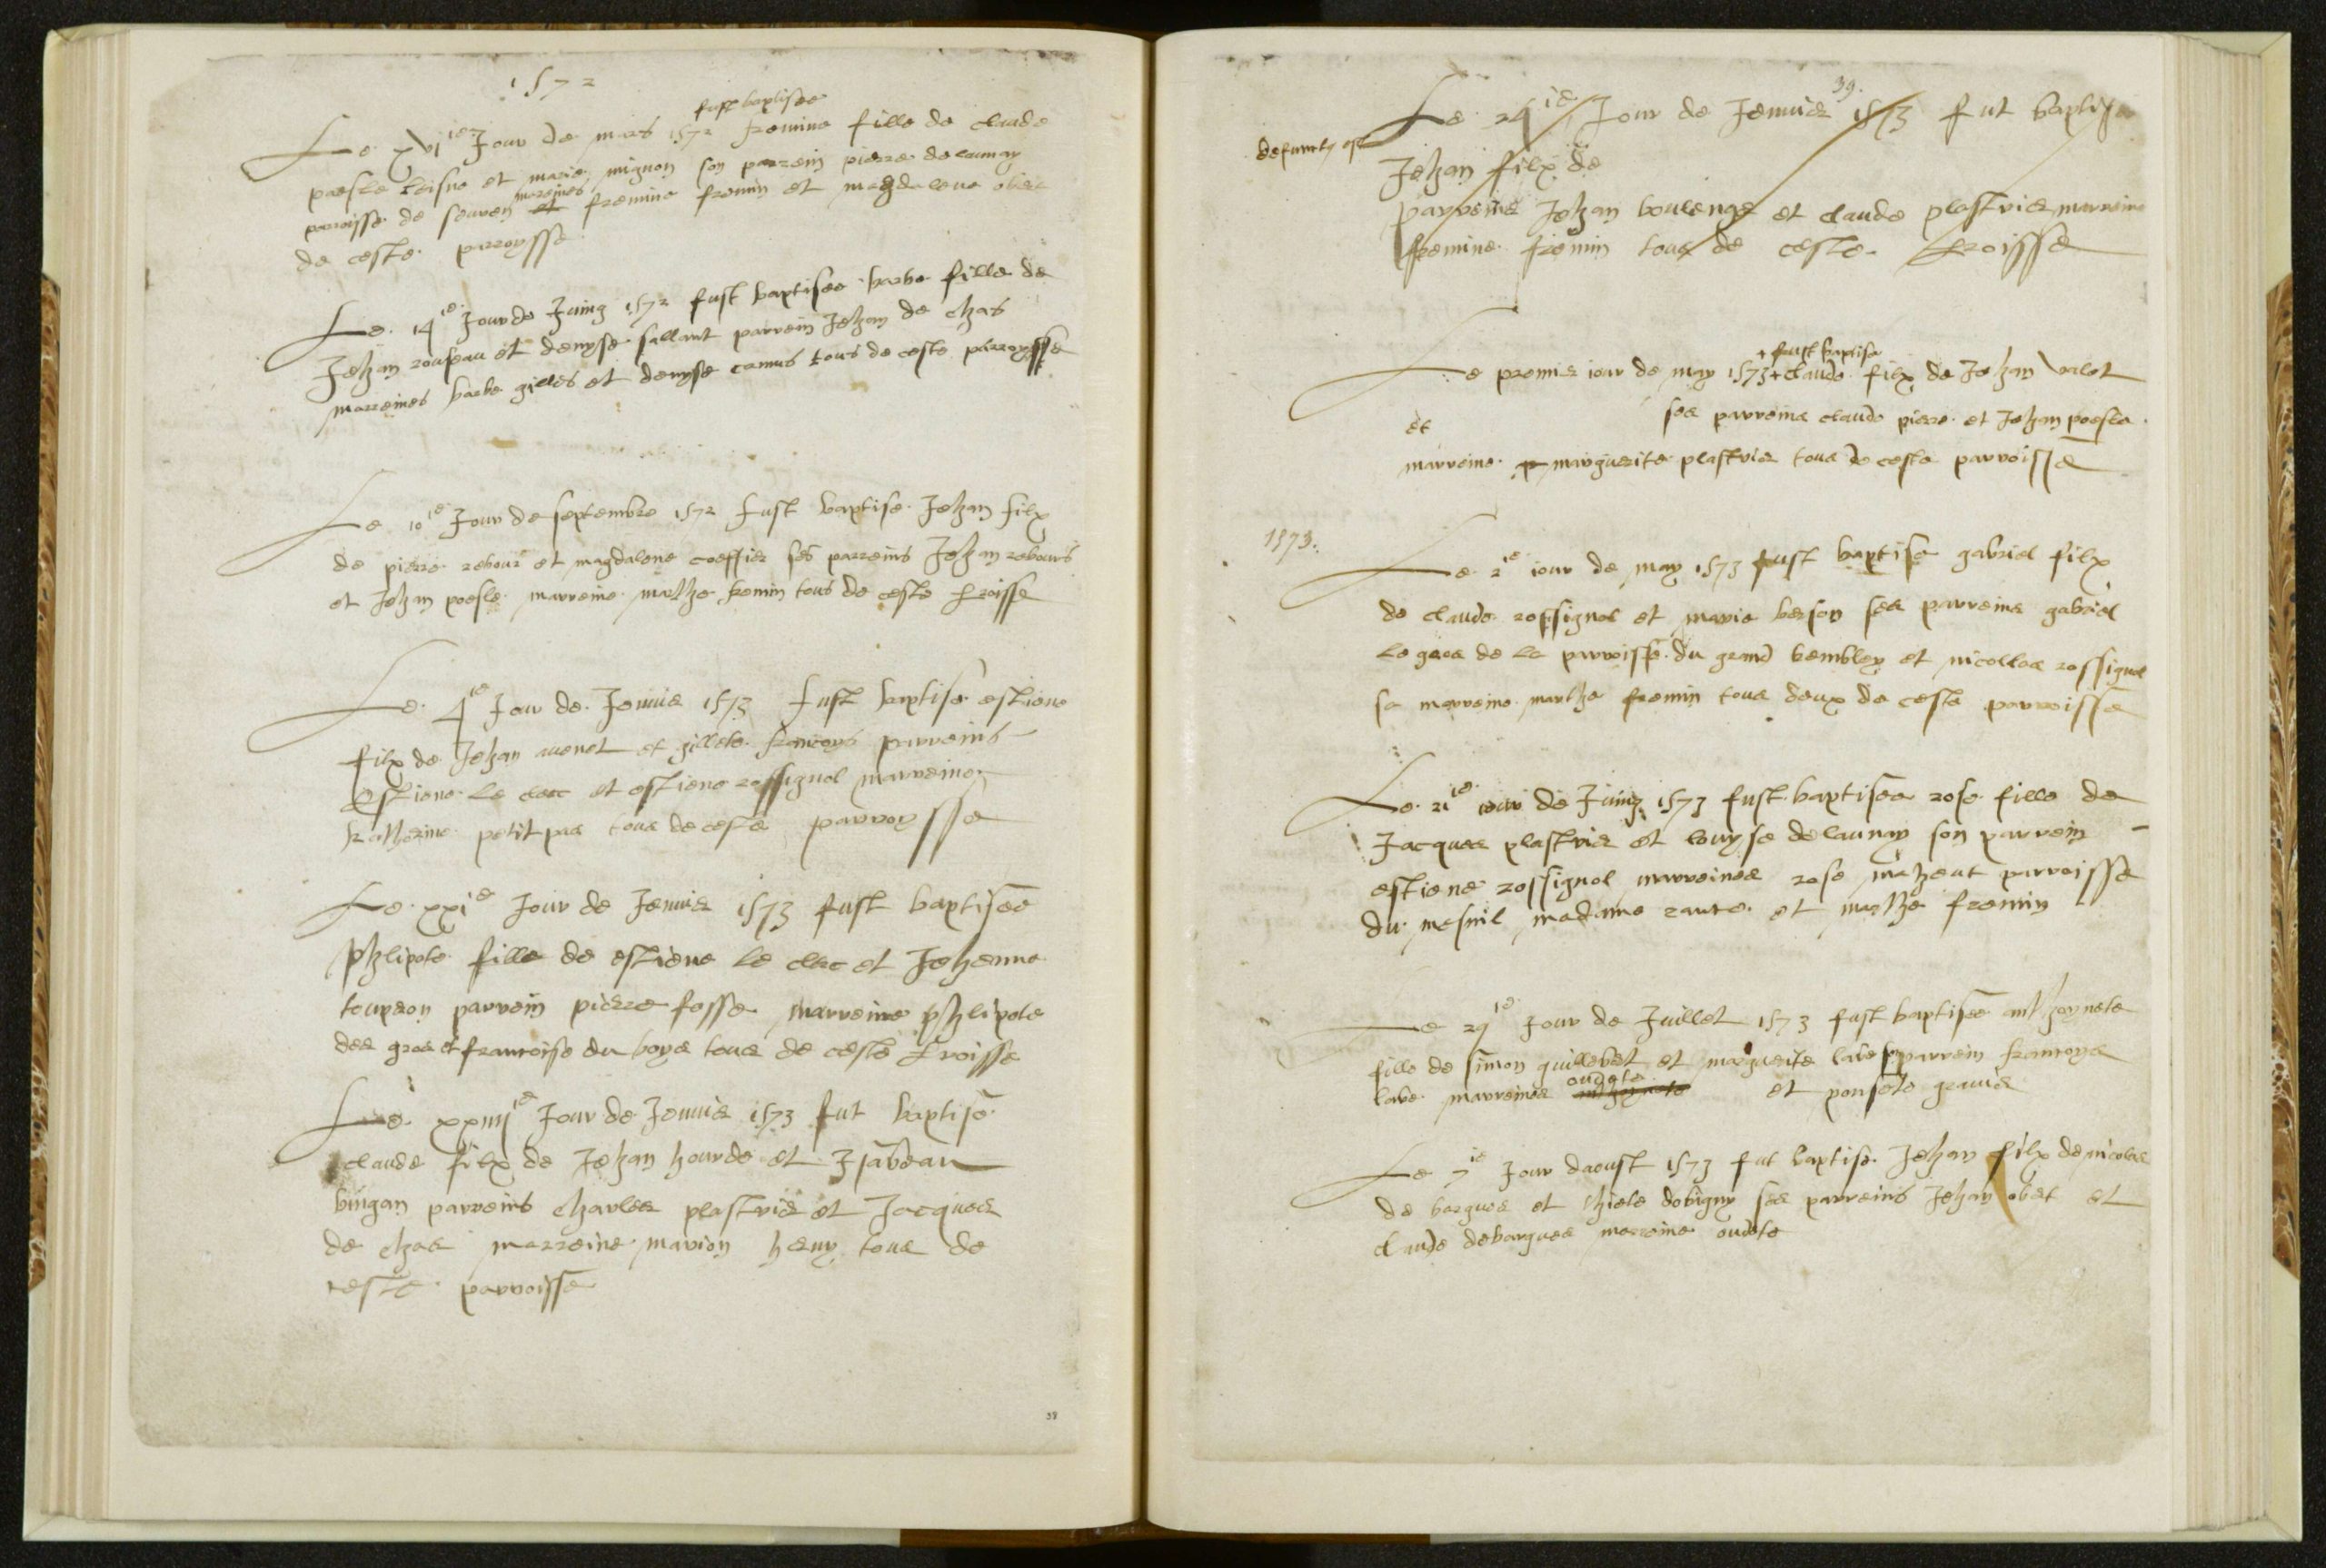 1572
fust baptisee
Le xvi ie Jour de mars 1572 fremine fille de claude
poesle leisne et marie mignon son parrein pierre delaunay
marreines
parroisse de seuren et fremine fremin et magdalene obert
de ceste parroysse
Le 14 ie Jour de Juing 1572 fust baptisee barbe fille de
Jehan rouseau et denyse sallant parrein Jehan de chas
marreines barbe gilles et denyse camus tous de ceste parroysse
Le 10 ie Jour de septembre 1572 fust baptise Jehan filx
de pierre rebour et magdalene coeffier ses parreins Jehan rebours
et Jehan poesle marreine marthe fremin tous de ceste proisse
Le 4 ie Jour de Jenvier 1573 fust baptise estiene
filx de Jehan avenel et gillete francoys parreins
Estiene le clerc et estiene rossignol marreine
Katherine petit pas tous de ceste parroysse
Le xxi e Jour de Jenvier 1573 fust baptisee
phlipote fille de estiene le clerc et Jehenne
touperon parrein pierre fosse marreine phlipote
des gros et francoise du boys tous de ceste proisse
Le xxiiij ie Jour de Jenvier 1573 fut baptise
claude filx de Jehan hourde et Jsabeau
bingan parreins charles plastrier et Jacques
de chas marreine marion heny tous de
ceste parroisse
38
39.
Le 24 ie Jour de Jenvier 1573 fut baptise
defunctz est
Jehan filx de
parreins Jehan boulenger et claude plastrier marreine
fremine fremin tous de ceste proisse
+ fust baptise
Le premier iour de may 1573 + claude filx de Jehan valet
et ses parreins claude pierre et Jehan poesle
marreine marguerite plastrier tous de ceste parroisse
1573.
Le 2 ie iour de may 1573 fust baptise gabriel filx
de claude rossignol et marie berson ses parreins gabriel
le gros de la parroisse du grand bemblay et nicollas rossignol
sa marreine marthe fremin tous deux de ceste parroisse
Le 21 ie iour de Juing 1573 fust baptisee rose fille de
Jacques plastrier et louyse delaunay son parrein
estiene rossignol marreines rose maheut parroisse
du mesnil madame rance et marthe fremin
Le 29 ie Jour de Juillet 1573 fust baptisee anthoynete
fille de simon guillebet et marguerite labe parrein francoys
oudete
labe marreines anthoynete et ponsete gravier
Le 7 ie Jour daoust 1573 fut baptise Jehan filx de nicolas
de bargues et thiele dobigny ses parreins Jehan obert et
claude debargues marreine oudete